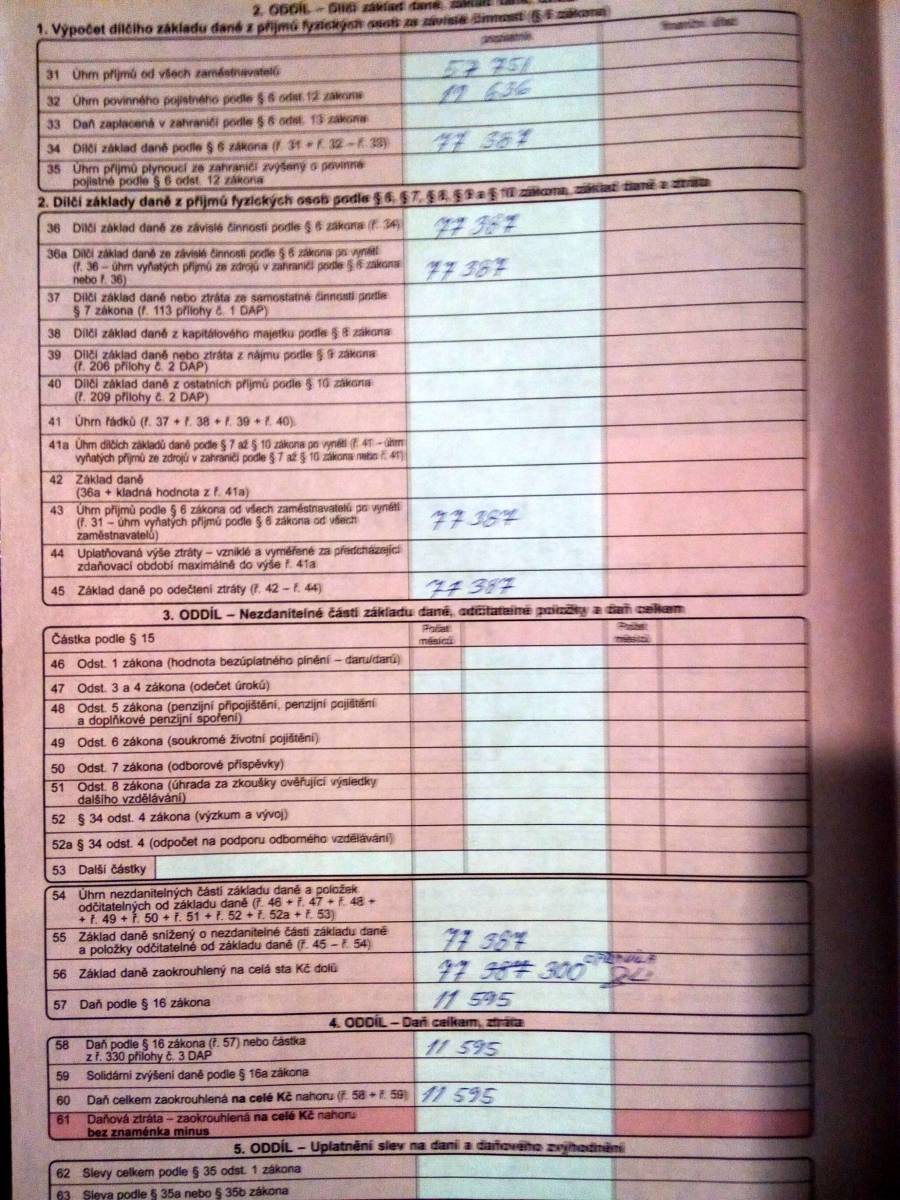 2. ODDÍL – Dílčí základ daně, základ daně,
1. Výpočet dílčího základu daně z příjmů fyzických osob ze závislé činnosti (§ 6 zákona)
poplatník
finanční úřad
31 Úhrn příjmů od všech zaměstnavatelů 57 751
32 Úhrn povinného pojistného podle § 6 odst. 12 zákona 19 636
33 Daň zaplacená v zahraničí podle § 6 odst. 13 zákona
34 Dílčí základ daně podle § 6 zákona (ř. 31 + ř. 32 – ř. 33) 77 387
35 Úhrn příjmů plynoucí ze zahraničí zvýšený o povinné
pojistné podle § 6 odst. 12 zákona
2. Dílčí základy daně z příjmů fyzických osob podle § 6, § 7, § 8, § 9 a § 10 zákona, základ daně a ztráta
36 Dílčí základ daně ze závislé činnosti podle § 6 zákona (ř. 34) 77 387
36a Dílčí základ daně ze závislé činnosti podle § 6 zákona po vynětí
(ř. 36 – úhrn vyňatých příjmů ze zdrojů v zahraničí podle § 6 zákona
nebo ř. 36) 77 387
37 Dílčí základ daně nebo ztráta ze samostatné činnosti podle
§ 7 zákona (ř. 113 přílohy č. 1 DAP)
38 Dílčí základ daně z kapitálového majetku podle § 8 zákona
39 Dílčí základ daně nebo ztráta z nájmu podle § 9 zákona
(ř. 206 přílohy č. 2 DAP)
40 Dílčí základ daně z ostatních příjmů podle § 10 zákona
(ř. 209 přílohy č. 2 DAP)
41 Úhrn řádků (ř. 37 + ř. 38 + ř. 39 + ř. 40)
41a Úhrn dílčích základů daně podle § 7 až § 10 zákona po vynětí (ř. 41 – úhrn
vyňatých příjmů ze zdrojů v zahraničí podle § 7 až § 10 zákona nebo ř. 41)
42 Základ daně
(36a + kladná hodnota z ř. 41a)
43 Úhrn příjmů podle § 6 zákona od všech zaměstnavatelů po vynětí
(ř. 31 – úhrn vyňatých příjmů podle § 6 zákona od všech
zaměstnavatelů) 77 387
44 Uplatňovaná výše ztráty – vzniklé a vyměřené za předcházející
zdaňovací období maximálně do výše ř. 41a
45 Základ daně po odečtení ztráty (ř. 42 – ř. 44) 77 387
3. ODDÍL – Nezdanitelné části základu daně, odčitatelné položky a daň celkem
Částka podle § 15
Počet
měsíců
Počet
měsíců
46 Odst. 1 zákona (hodnota bezúplatného plnění – daru/darů)
47 Odst. 3 a 4 zákona (odečet úroků)
48 Odst. 5 zákona (penzijní připojištění, penzijní pojištění
a doplňkové penzijní spoření)
49 Odst. 6 zákona (soukromé životní pojištění)
50 Odst. 7 zákona (odborové příspěvky)
51 Odst. 8 zákona (úhrada za zkoušky ověřující výsledky
dalšího vzdělávání)
52 § 34 odst. 4 zákona (výzkum a vývoj)
52a § 34 odst. 4 (odpočet na podporu odborného vzdělávání)
53 Další částky
54 Úhrn nezdanitelných částí základu daně a položek
odčitatelných od základu daně (ř. 46 + ř. 47 + ř. 48 +
+ ř. 49 + ř. 50 + ř. 51 + ř. 52 + ř. 52a + ř. 53)
55 Základ daně snížený o nezdanitelné části základu daně
a položky odčitatelné od základu daně (ř. 45 – ř. 54) 77 387
56 Základ daně zaokrouhlený na celá sta Kč dolů 77 387 300
57 Daň podle § 16 zákona 11 595
4. ODDÍL – Daň celkem, ztráta
58 Daň podle § 16 zákona (ř. 57) nebo částka
z ř. 330 přílohy č. 3 DAP 11 595
59 Solidární zvýšení daně podle § 16a zákona
60 Daň celkem zaokrouhlená na celé Kč nahoru (ř. 58 + ř. 59) 11 595
61 Daňová ztráta – zaokrouhlená na celé Kč nahoru
bez znaménka minus
5. ODDÍL – Uplatnění slev na dani a daňového zvýhodnění
62 Slevy celkem podle § 35 odst. 1 zákona
63 Sleva podle § 35a nebo § 35b zákona